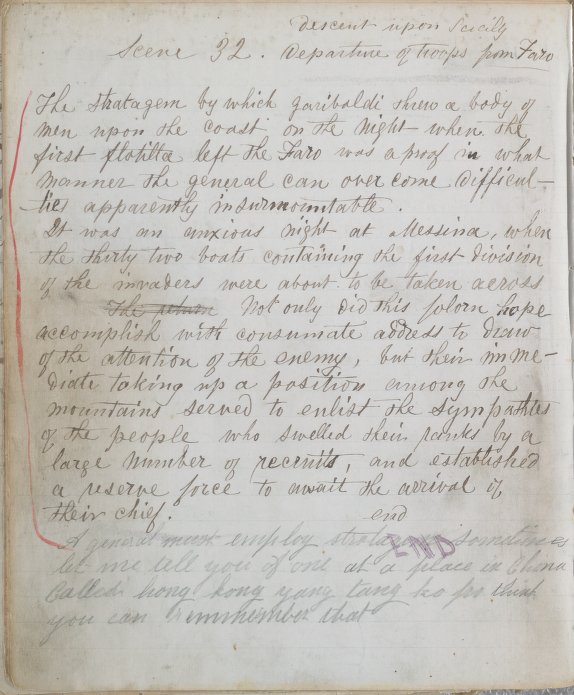 Descent upon Scicily
Scene 32. Departure of troops from Faro
The stratagem by which garibaldi threw a body of
men upon the coast on the night when the
first flotilta left the Faro was a proof in what
manner the general can over come difficul-
ties apparently insurmountable.
It was an anxious night at Messina, when
the thirty two boats containing the first division
of the invaders were about to be taken across
The return Not only did this folorn hope
accomplish with consumate address to draw
of the attention of the enemy, but their imme-
diate taking up a position among the
mountains served to enlist the sympathies
of the people who swelled their ranks by a
large number of recruits, and established
a reserve force to await the arrival of
their chief. end
A general must employ sometimes
END
let me tell you of one at a place in China
Called hong kong yang tang ko fo think
you can remmember that